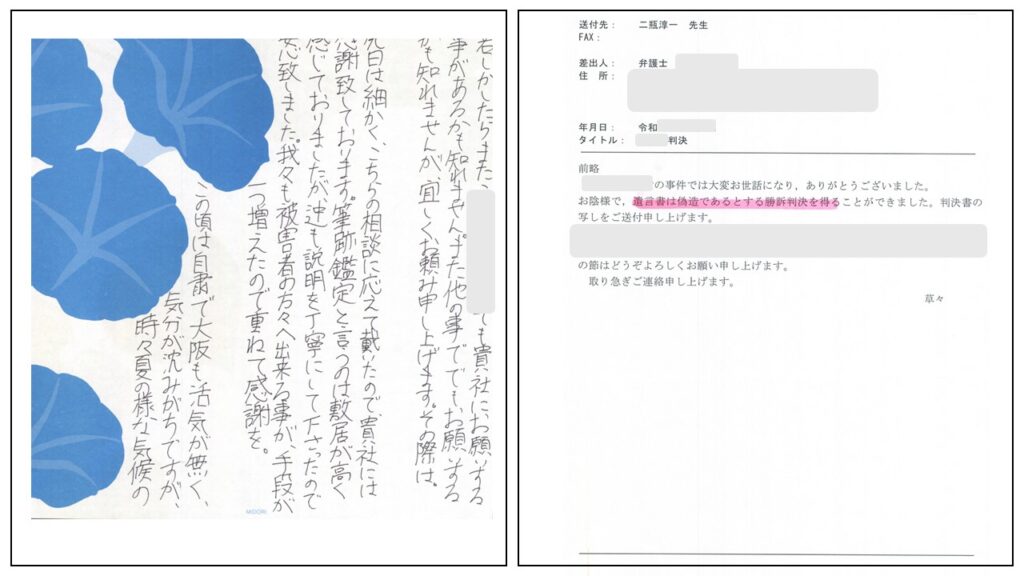 若しかしたらまた、ても貴社にお願いする
事があるかも知れません。また他の事ででもお願いする
かも知れませんが、宜しくお頼み申し上げます。その際は。
先日は細かく、こちらの相談に応えて戴いたので、貴社には
感謝致しております。筆跡鑑定と言うのは敷居が高く
感じておりましたが、迚も説明を丁寧にして下さったので
安心致しました。我々も被害者の方々へ出来る事が、手段が
一つ増えたので重ねて感謝を。
この頃は自粛で大阪も活気が無く、
気分が沈みがちですが、
時々夏の様な気候の
MIDORI
送付先： 二瓶淳一 先生
FAX：
差出人： 弁護士
住 所：
年月日： 令和
タイトル： 判決
前略
の事件では大変お世話になり，ありがとうございました。
お陰様で，遺言書は偽造であるとする勝訴判決を得ることができました。判決書の
写しをご送付申し上げます。
の節はどうぞよろしくお願い申し上げます。
取り急ぎご連絡申し上げます。
草々